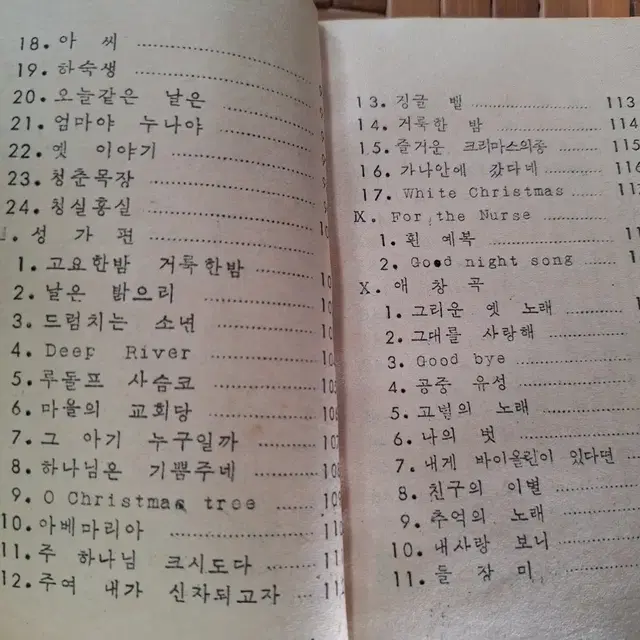 18. 아 씨
19. 하숙생
20. 오늘같은 날은
21. 엄마야 누나야
22. 옛 이야기
23. 청춘목장
24. 청실홍실
성 가 편
1. 고요한밤 거룩한밤
2. 날은 밝으리
3. 드럼치는 소년
4. Deep River
5. 루돌프 사슴코
6. 마을의 교회당 106
7. 그 아기 누구일까 107
8. 하나님은 기쁨주네 108
9. O Christmas tree 109
10. 아베마리아
11. 주 하나님 크시도다
12. 주여 내가 신자되고자
13. 징글 벨 113
14. 거룩한 밤 114
15. 즐거운 크리마스의종 115
16. 가나안에 갔다네 116
17. White Christmas
Ⅸ. For the Nurse
1. 흰 예복
2. Good night song
Ⅹ. 애 창 곡
1. 그리운 옛 노래
2. 그대를 사랑해
3. Good bye
4. 공중 유성
5. 고별의 노래
6. 나의 벗
7. 내게 바이올린이 있다면
8. 친구의 이별
9. 추억의 노래
10. 내사랑 보니
11. 들 장 미